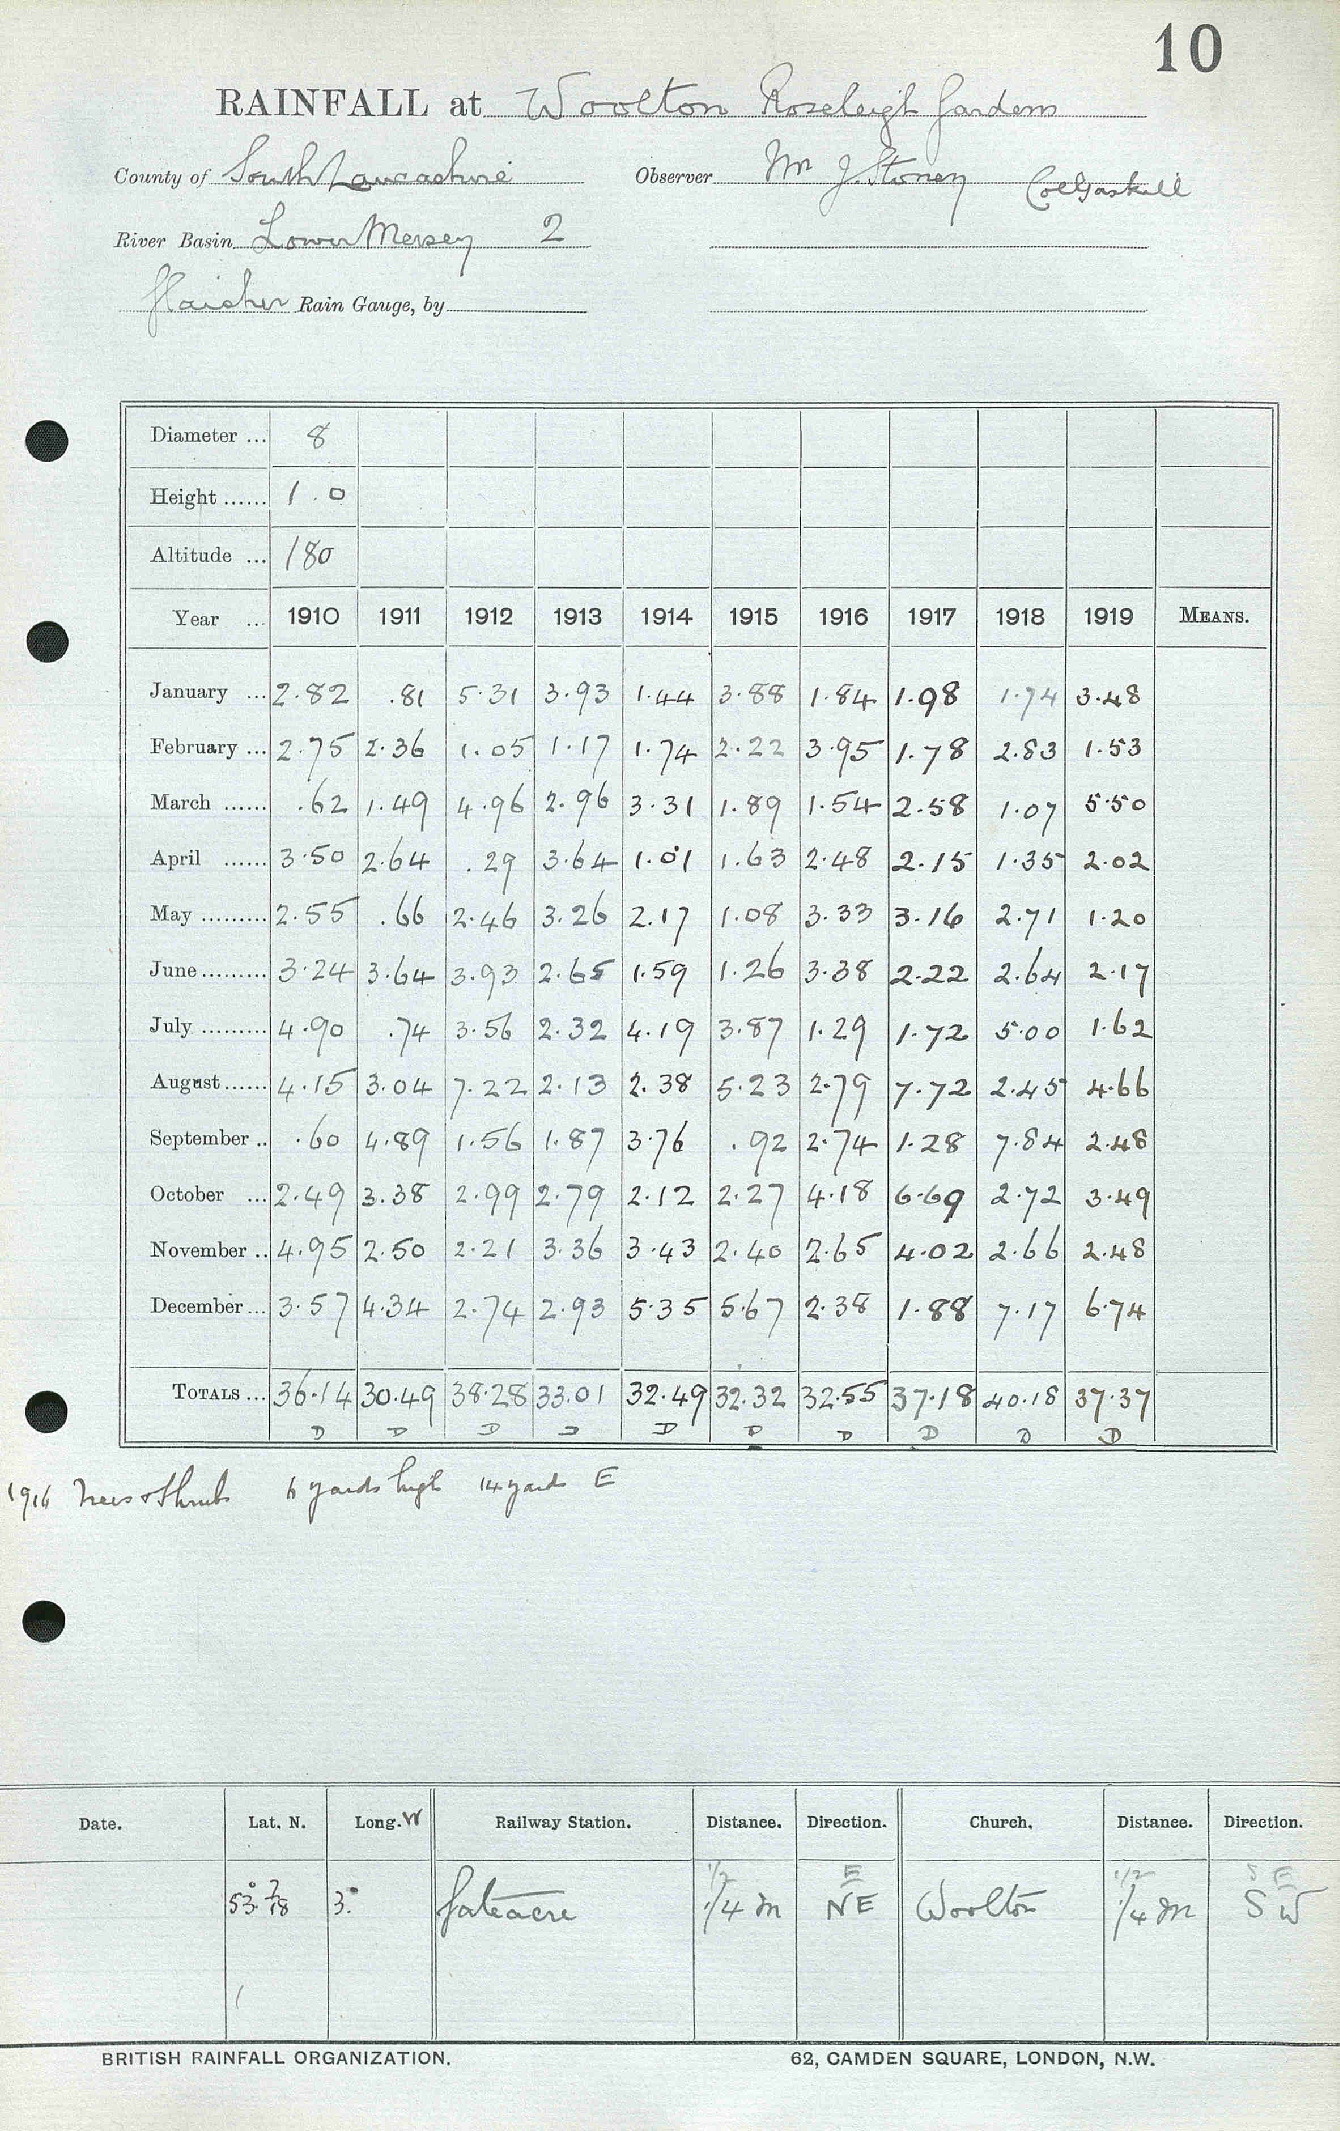 10
RAINFALL at Woolton Roseleigh Gardens
County of South Lancashire Observer Mr J. Stoney Col Gaskell
River Basin Lower Mersey 2
Rain Gauge, by
Diameter ... 8
Height ...... 1.0
Altitude ... 180
Year ... 1910 1911 1912 1913 1914 1915 1916 1917 1918 1919 MEANS.
January ... 2.82 .81 5.31 3.93 1.44 3.88 1.84 1.98 1.74 3.48
February ... 2.75 2.36 1.05 1.17 1.74 2.22 3.95 1.78 2.83 1.53
March ...... .62 1.49 4.96 2.96 3.31 1.89 1.54 2.58 1.07 5.50
April ...... 3.50 2.64 .29 3.64 1.01 1.63 2.48 2.15 1.35 2.02
May ......... 2.55 .66 2.46 3.26 2.17 1.08 3.33 3.16 2.71 1.20
June ......... 3.24 3.64 3.93 2.65 1.59 1.26 3.38 2.22 2.64 2.17
July ......... 4.90 .74 3.56 2.32 4.19 3.87 1.29 1.72 5.00 1.62
August ...... 4.15 3.04 7.22 2.13 2.38 5.23 2.79 7.72 2.45 4.66
September .. .60 4.89 1.56 1.87 3.76 .92 2.74 1.28 7.84 2.48
October ... 2.49 3.38 2.99 2.79 2.12 2.27 4.18 6.69 2.72 3.49
November .. 4.95 2.50 2.21 3.36 3.43 2.40 2.65 4.02 2.66 2.48
December ... 3.57 4.34 2.74 2.93 5.35 5.67 2.38 1.88 7.17 6.74
TOTALS ... 36.14 30.49 38.28 33.01 32.49 32.32 32.55 37.18 40.18 37.37
D D D D D D D D D D
1916 Trees & Shrubs 6 yards high 14 yards E
Date. Lat. N. Long. W Railway Station. Distance. Direction. Church. Distance. Direction.
1/2 E 1/2 S E
53° 3° Gateacre 1/4 m NE Woolton 1/4 m SW
BRITISH RAINFALL ORGANIZATION. 62, CAMDEN SQUARE, LONDON, N.W.